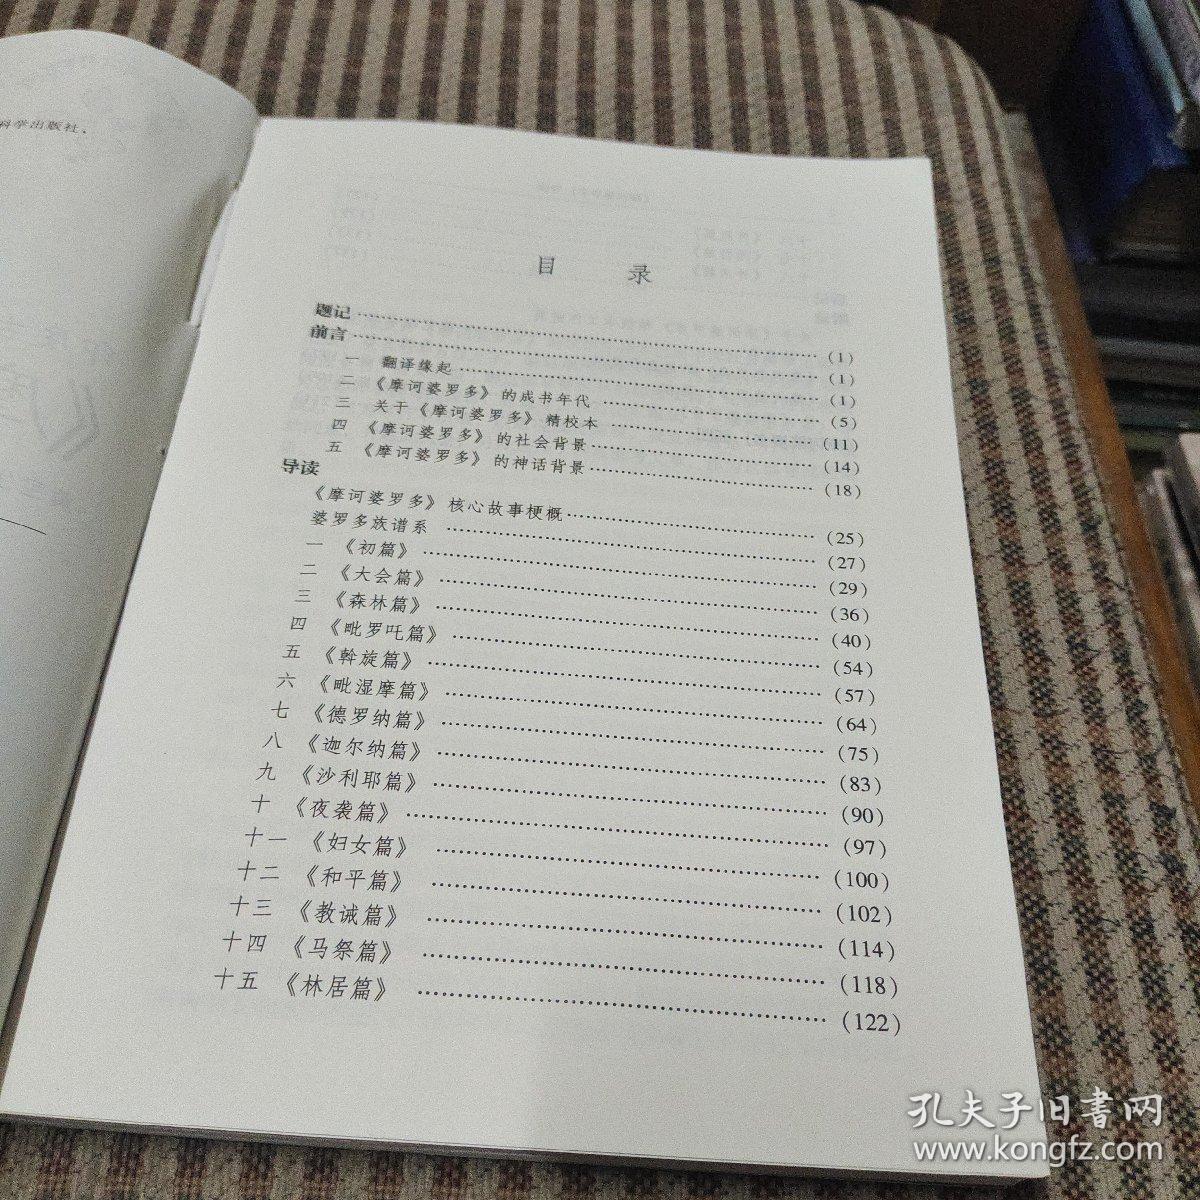 科学出版社,
目 录
题记……(1)
前言……(1)
一 翻译缘起……(1)
二 《摩诃婆罗多》的成书年代……(5)
三 关于《摩诃婆罗多》精校本……(11)
四 《摩诃婆罗多》的社会背景……(14)
五 《摩诃婆罗多》的神话背景……(18)
导读
《摩诃婆罗多》核心故事梗概……(25)
婆罗多族谱系……(27)
一 《初篇》……(29)
二 《大会篇》……(36)
三 《森林篇》……(40)
四 《毗罗吒篇》……(54)
五 《斡旋篇》……(57)
六 《毗湿摩篇》……(64)
七 《德罗纳篇》……(75)
八 《迦尔纳篇》……(83)
九 《沙利耶篇》……(90)
十 《夜袭篇》……(97)
十一 《妇女篇》……(100)
十二 《和平篇》……(102)
十三 《教诫篇》……(114)
十四 《马祭篇》……(118)
十五 《林居篇》……(122)
孔夫子旧書网
www.kongfz.com